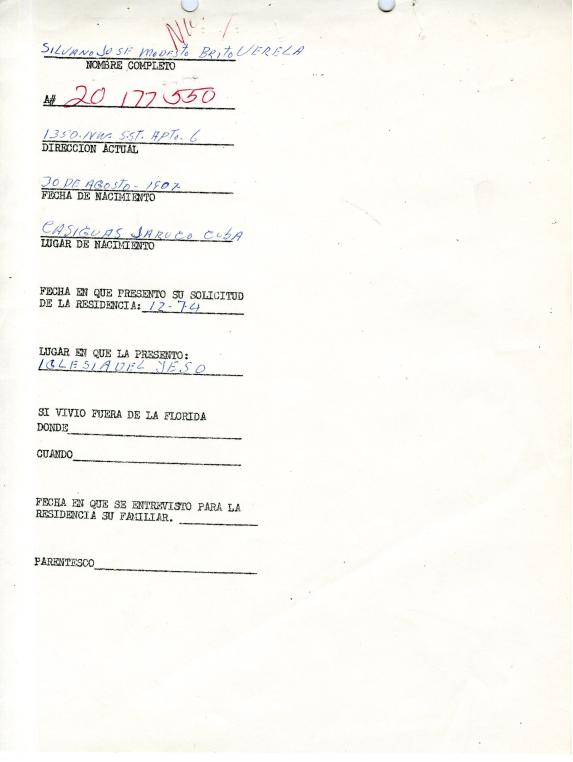 SILVANO JOSE MODESTO BRITO VERELA
NOMBRE COMPLETO
A# 20 177 550
1350. NW. 5 ST. APTO. 6
DIRECCION ACTUAL
30 DE AGOSTO - 1902
FECHA DE NACIMIENTO
CASIGUAS JARUCO CUBA
LUGAR DE NACIMIENTO
FECHA EN QUE PRESENTO SU SOLICITUD
DE LA RESIDENCIA: 12-74
LUGAR EN QUE LA PRESENTO:
IGLESIA DEL JESO
SI VIVIO FUERA DE LA FLORIDA
DONDE
CUANDO
FECHA EN QUE SE ENTREVISTO PARA LA
RESIDENCIA SU FAMILIAR.
PARENTESCO